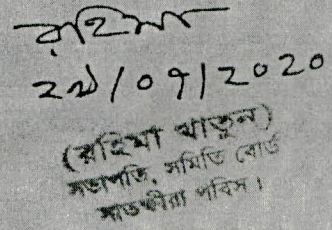 রহিমা
২৯/০৭/২০২০
(রহিমা খাতুন)
সভাপতি, সমিতি বোর্ড
সাতক্ষীরা পবিস।